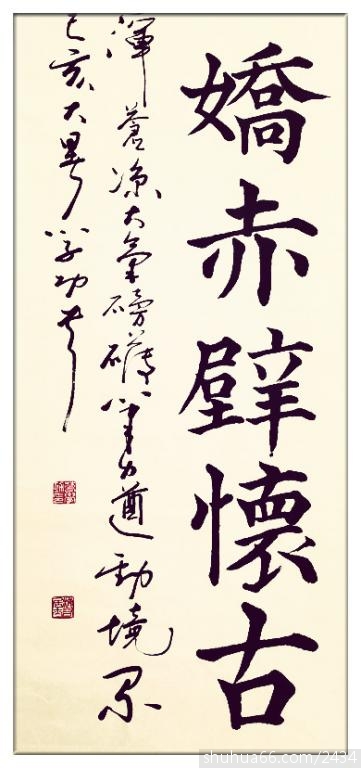 嬌赤壁懷古
渾蒼涼大氣磅礴筆力遒勁境界
己亥大暑學功书
shuhua66.com/2434